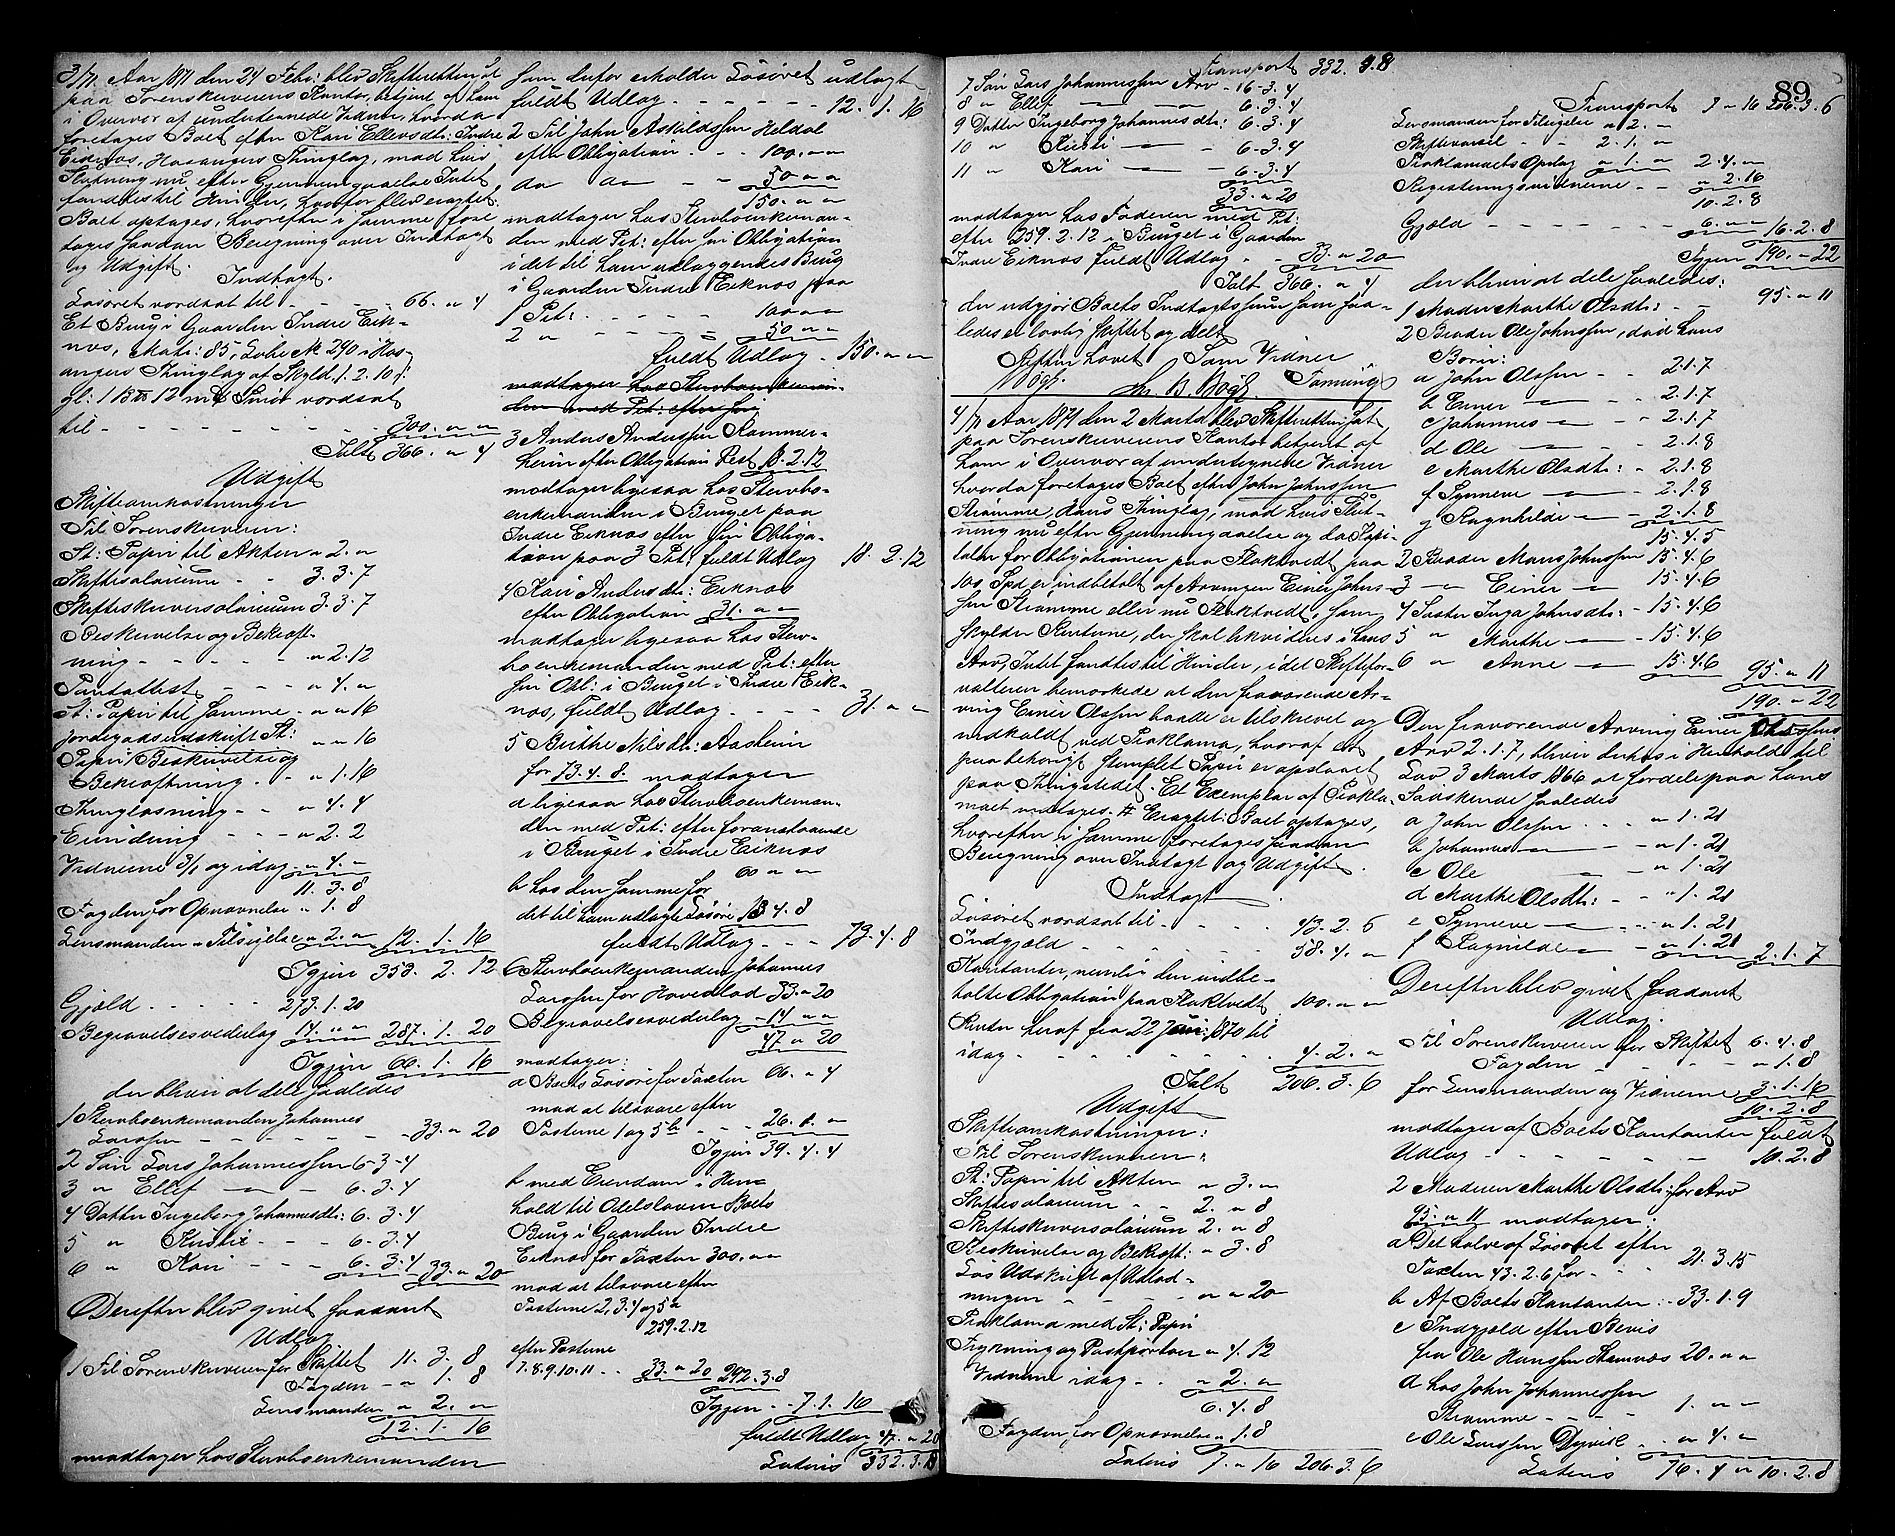 3/71 Aar 1871 den 24 Febr: blev Skifteretten sat
paa Sorenskriverens Kontor, betjent af ham
i Overvær af undertegnede Vidner, hvorda
foretoges Boet efter Kari Ellevsdtr: Indre
Eiknæs, Hosangers Thinglag, mod hvis
Slutning nu efter Gjennemgaaelse Intet
fandtes til Hinder, hvorfor blev eragtet:
Boet optages, hvorefter i samme fore-
tages saadan Beregning over Indtægt
og Udgift.
Indtægt.
Løsøret vordsat til - - - 66. " 4
Et Brug i Gaarden Indre Eik-
næs, Matr: 85, Løbe No 290 i Hos-
angers Thinglag af Skyld 1. 2. 10 ß
gl: 1 B 12 mk Smør vordsat
til - - - - - - - 300. " "
Ialt 366. " 4
Udgift
Skifteomkostninger
Til Sorenskriveren:
St: Papir til Akten " 2. "
Skiftesalarium - - 3. 3. 7
Skifteskriversalarium 3. 3. 7
Beskrivelse og Bekræft-
ning - - - - " 2. 12
Pantattest - - - " 4. "
St: Papir til samme - " " 16
Jordegodsudskrift St:
Papir " " 16
Beskrivelse og
Bekræftning - - " 1. 16
Thinglæsning - - " 4. 4
Erindring - - - " 2. 2
Vidnerne 3/1 og idag - " 4. "
11. 3. 8
Fogden for Opnævnelse " 1. 8
Lensmanden " Tilsigelse " 2. " 12. 1. 16
Igjen 353. 2. 12
Gjæld - - - - 273. 1. 20
Begravelsesvederlag 14. " " 287. 1. 20
Igjen 66. 1. 16
der bliver at dele saaledes
1 Stervboenkemanden Johannes
Larssen - - - - - - 33. " 20
2 Søn Lars Johannessen 6. 3. 4
3 " Ellef — " — - 6. 3. 4
4 Datter Ingeborg Johannesdtr: 6. 3. 4
5 " Kristi - - - 6. 3. 4
6 " Kari - - - 6. 3. 4 33. " 20
Derefter blev givet saadant
Udlæg
1 Til Sorenskriveren for Skiftet 11. 3. 8
Fogden - " 1. 8
Lensmanden " 2. "
12. 1. 16
modtager hos Stervboenkemanden
som derfor erholder Løsøret udlagt
fuldt Udlæg - - - - - 12. 1. 16
2 Til John Askildssen Heldal
efter Obligation - - 100. " "
do do - - 50 " "
150. " "
modtager hos Stervboenkeman-
den med Prt: efter sin Obligation
i det til ham udlæggendes Brug
i Gaarden Indre Eiknæs paa
1 Prt: - - - - - 100 " "
2 " - - - - - 50 " "
fuldt Udlæg - 150. " "
modtager hos Stervboenkeman-
den med Prt: efter sin
3 Anders Anderssen Rammer-
herin efter Obligation Rest 18. 2. 12
modtager ligesaa hos Stervbo-
enkemanden i Bruget paa
Indre Eiknæs efter sin Obliga-
tion paa 3 Prt: fuldt Udlæg 18. 2. 12
4 Kari Andersdtr: Eiknæs
efter Obligation 31. " "
modtager ligesaa hos Sterv-
boenkemanden med Prt: efter
sin Obl: i Bruget i Indre Eik-
næs, fuldt Udlæg - - - - 31. " "
5 Brithe Nilsdtr: Aasheim
for 73. 4. 8. modtager
a ligesaa hos Stervboenkeman-
den med Prt: efter foranstaaende
i Bruget i Indre Eiknæs
60 " "
b hos den samme for
det til ham udlagte Løsøre 13 4. 8
fuldt Udlæg - - - 73. 4. 8
6 Stervboenkemanden Johannes
Larssen for Hovedlod 33. " 20
Begravelsesvederlag - 14 " "
47 " 20
modtager:
a Boets Løsøre for Taxten 66. " 4
mod at tilsvare efter
Posterne 1 og 5 b - - - 26. 1. "
Igjen 39. 4. 4
b med Eiendom i Hen-
hold til Odelsloven Boets
Brug i Gaarden Indre
Eiknæs for Taxten 300. " "
mod at tilsvare efter
Posterne 2, 3. 4 og 5 a
259. 2. 12
efter Posterne
7. 8. 9. 10. 11 - - 33. " 20 292. 3. 8
Igjen - - 7. 1. 16
fuldt Udlæg 47. " 20
Lateris 332. 3. 8
Transport 332. 3. 8
7 Søn Lars Johannessen Arv - 16. 3. 4
8 " Ellef — " — 6. 3. 4
9 Datter Ingeborg Johannesdtr: 6. 3. 4
10 " Kristi — " — 6. 3. 4
11 " Kari — " — 6. 3. 4
33. " 20
modtager hos Faderen med Prt:
efter 259. 2. 12 i Bruget i Gaarden
Indre Eiknæs fuldt Udlæg - - 33. " 20
Ialt 366. " 4
der udgjør Boets Indtægtssum som saa-
ledes er lovlig skiftet og delt
Skiftet hævet Som Vidner
4/71 Aar 1871 den 2 Marts blev Skifteretten sat
paa Sorenskriverens Kontor betjent af
ham i Overvær af undertegnede Vidner
hvorda foretoges Boet efter John Johnssen
Stramme, Haus Thinglag, mod hvis Slut-
ning nu efter Gjennemgaaelse og da Kapi-
talen for Obligationen paa Flaktvedt paa
100 Spd er indbetalt af Arvingen Einer Johns-
sen Stramme eller nu Flaktvedt, som
skylder Renterne, der skal likvideres i hans
Arv, Intet fandtes til Hinder, idet Skiftefor-
valteren bemærkede at den fraværende Ar-
ving Einer Olssen baade er tilskrevet og
indkaldt ved Proklama, hvoraf et
paa behørigt stemplet Papir er opslaaet
paa Thingstedet. Et Exemplar af Prokla-
maet modtages. # Eragtet: Boet optages,
hvorefter i samme foretoges saadan
Beregning over Indtægt og Udgift.
Indtægt
Løsøret vordsat til - - - - 43. 2. 6
Indgjæld - - - - - - 58. 4. "
Kontanter, nemlig den indbe-
talte Obligation paa Flaktvedt 100. " "
Renter heraf fra 22 Juni 1870 til
idag - - - - - - - 4. 2. "
Ialt 206. 3. 6
Udgift
Skifteomkostninger:
Til Sorenskriveren:
St: Papir til Akten " 3. "
Skiftesalarium - - 2. " 8
Skifteskriversalarium 2. " 8
Beskrivelse og Bekræft: " 3. 8
Løs Udskrift af Udlod-
ningen - - - - - " " 20
Proklama med St: Papir
Trykning og Postporto " 4. 12
Vidnerne idag - - " 2. "
6. 4. 8
Fogden for Opnævnelse " 1. 8
Lateris 7. " 16 206. 3. 6
89
Transport 7 " 16 206. 3. 6
Lensmanden for Tilsigelse " 2. -
Skiftevarsel - - 2. 1. "
Proklamaets Opslag " 1. " 2. 4. "
Registreringsvidnerne - - " 2. 16
10. 2. 8
Gjæld - - - - - - 6. " " 16. 2. 8
Igjen 190. - 22
der bliver at dele saaledes:
1 Moder Marthe Olsdtr: - 95. " 11
2 Broder Ole Johnssen, død hans
Børn:
a John Olssen - - 2. 1. 7
b Einer — " — - 2. 1. 7
c Johannes — " — - 2. 1. 7
d Ole — " — - 2. 1. 8
e Marthe Olsdtr: - 2. 1. 8
f Synneve — " — - 2. 1. 8
g Ragnhilde — " — - 2. 1. 8
15. 4. 5
2 Broder Mons Johnssen 15. 4. 6
3 — " — Einer — " — 15. 4. 6
4 Søster Inga Johnsdtr: - 15. 4. 6
5 " Marthe — " — - 15. 4. 6
6 " Anne — " — 15. 4. 6 95 " 11
190. - 22
Den fraværende Arving Einer Olssens
Arv 2. 1. 7, bliver derhos i Henhold til
Lov 3 Marts 1866 at fordele paa hans
Sødskende saaledes
a John Olssen - - - " 1. 21
b Johannes — " — - " 1. 21
c Ole — " — - " 1. 21
d Marthe Olsdtr: - " 1. 21
e Synneve — " — - - " 1. 21
f Ragnilde — " — - " 1. 21 2. 1. 7
Derefter blev givet saadant
Udlæg.
Til Sorenskriveren for Skiftet 6. 4. 8
Fogden - - - - - " 1. 8
for Lensmanden og Vidnerne 3. 1. 16
10. 2. 8
modtager af Boets Kontanter fuldt
Udlæg - - - - - - 10. 2. 8
2 Moderen Marthe Olsdtr: for Arv
95. " 11 modtager:
a Det halve af Løsøret efter
Taxten 43. 2. 6 for - - - 21. 3. 15
b Af Boets Kontanter: - 33. 1. 9
c Indgjæld efter Bevis
fra Ole Hanssen Stamnæs 20. " "
d hos John Johannessen
Stramme - - - - 1. " "
e Ole Larssen Dyvik - - " 4. "
Lateris 76. 4 " 10. 2. 8